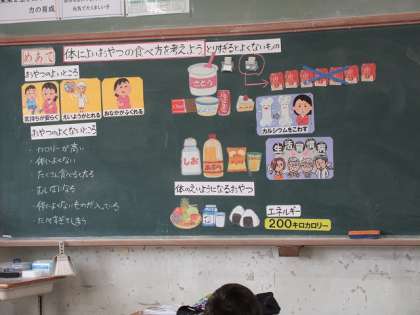 力の育成
元気でたくましい子
めあて 体によいおやつの食べ方を考えよう とりすぎるとよくないもの
おやつのよいところ
気持ちが安らぐ
えいようがとれる
おなかがふくれる
カルシウムをこわす
おやつのよくないところ
・カロリーが高い
・体によくない
・たくさん食べると太る
・むしばになる
・体によくないものが入っている
・たべすぎてしまう
しお
あぶら
生活習慣病
体のえいようになるおやつ
エネルギー
200キロカロリー